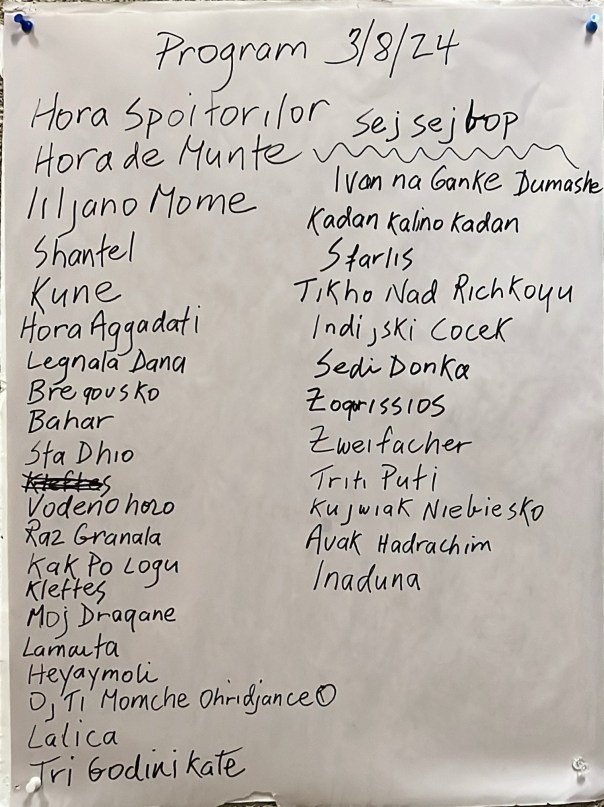 Program 3/8/24
Hora Spoitorilor
Hora de Munte
Iiljano Mome
Shantel
Kune
Hora Aggadati
Legnala Dana
Bregovsko
Bahar
Sta Dhio
Kleftes
Vodeno horo
Raz Granala
Kak Po Logu
Kleftes
Moj Dragane
Lamauta
Heyaymoli
Oj Ti Momche Ohridjance
Lalica
Tri Godini Kate
Sej sej bop
Ivan na Ganke Dumashe
Kadan Kalino Kadan
Starlis
Tikho Nad Richkoyu
Indijski Cocek
Sedi Donka
Zogrissios
Zweifacher
Triti Puti
Kujwiak Niebiesko
Avak Hadrachim
Inaduna